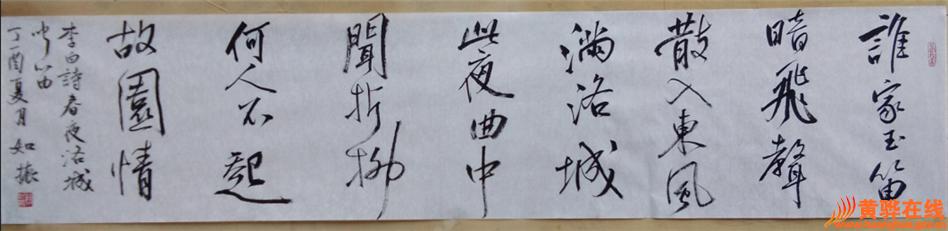 誰家玉笛
暗飛聲
散入東風
滿洛城
此夜曲中
聞折柳
何人不起
故園情
李白詩春夜洛城
丁酉夏月 如振
黄骅在线